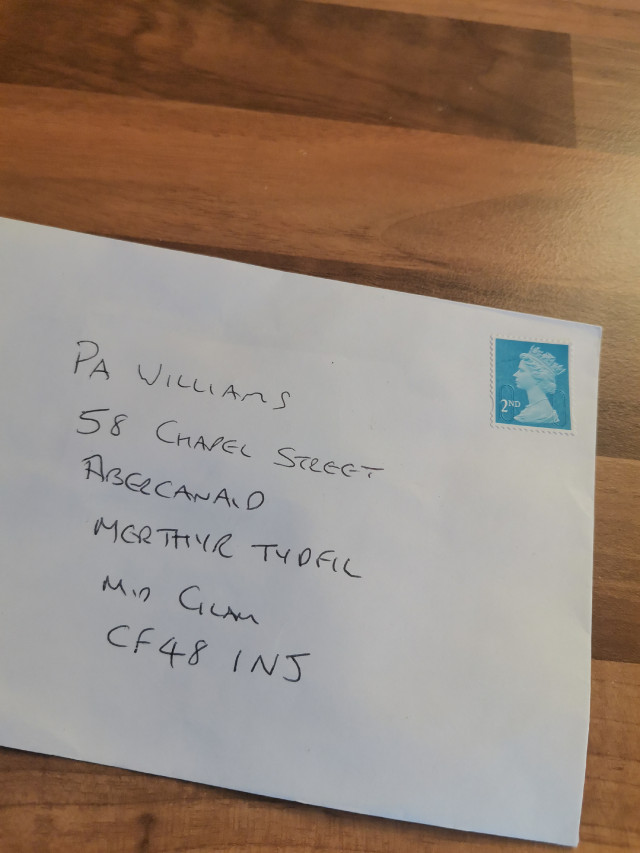 PA WILLIAMS
58 CHAPEL STREET
ABERCANAID
MERTHYR TYDFIL
MID GLAM
CF48 1NJ
2ND